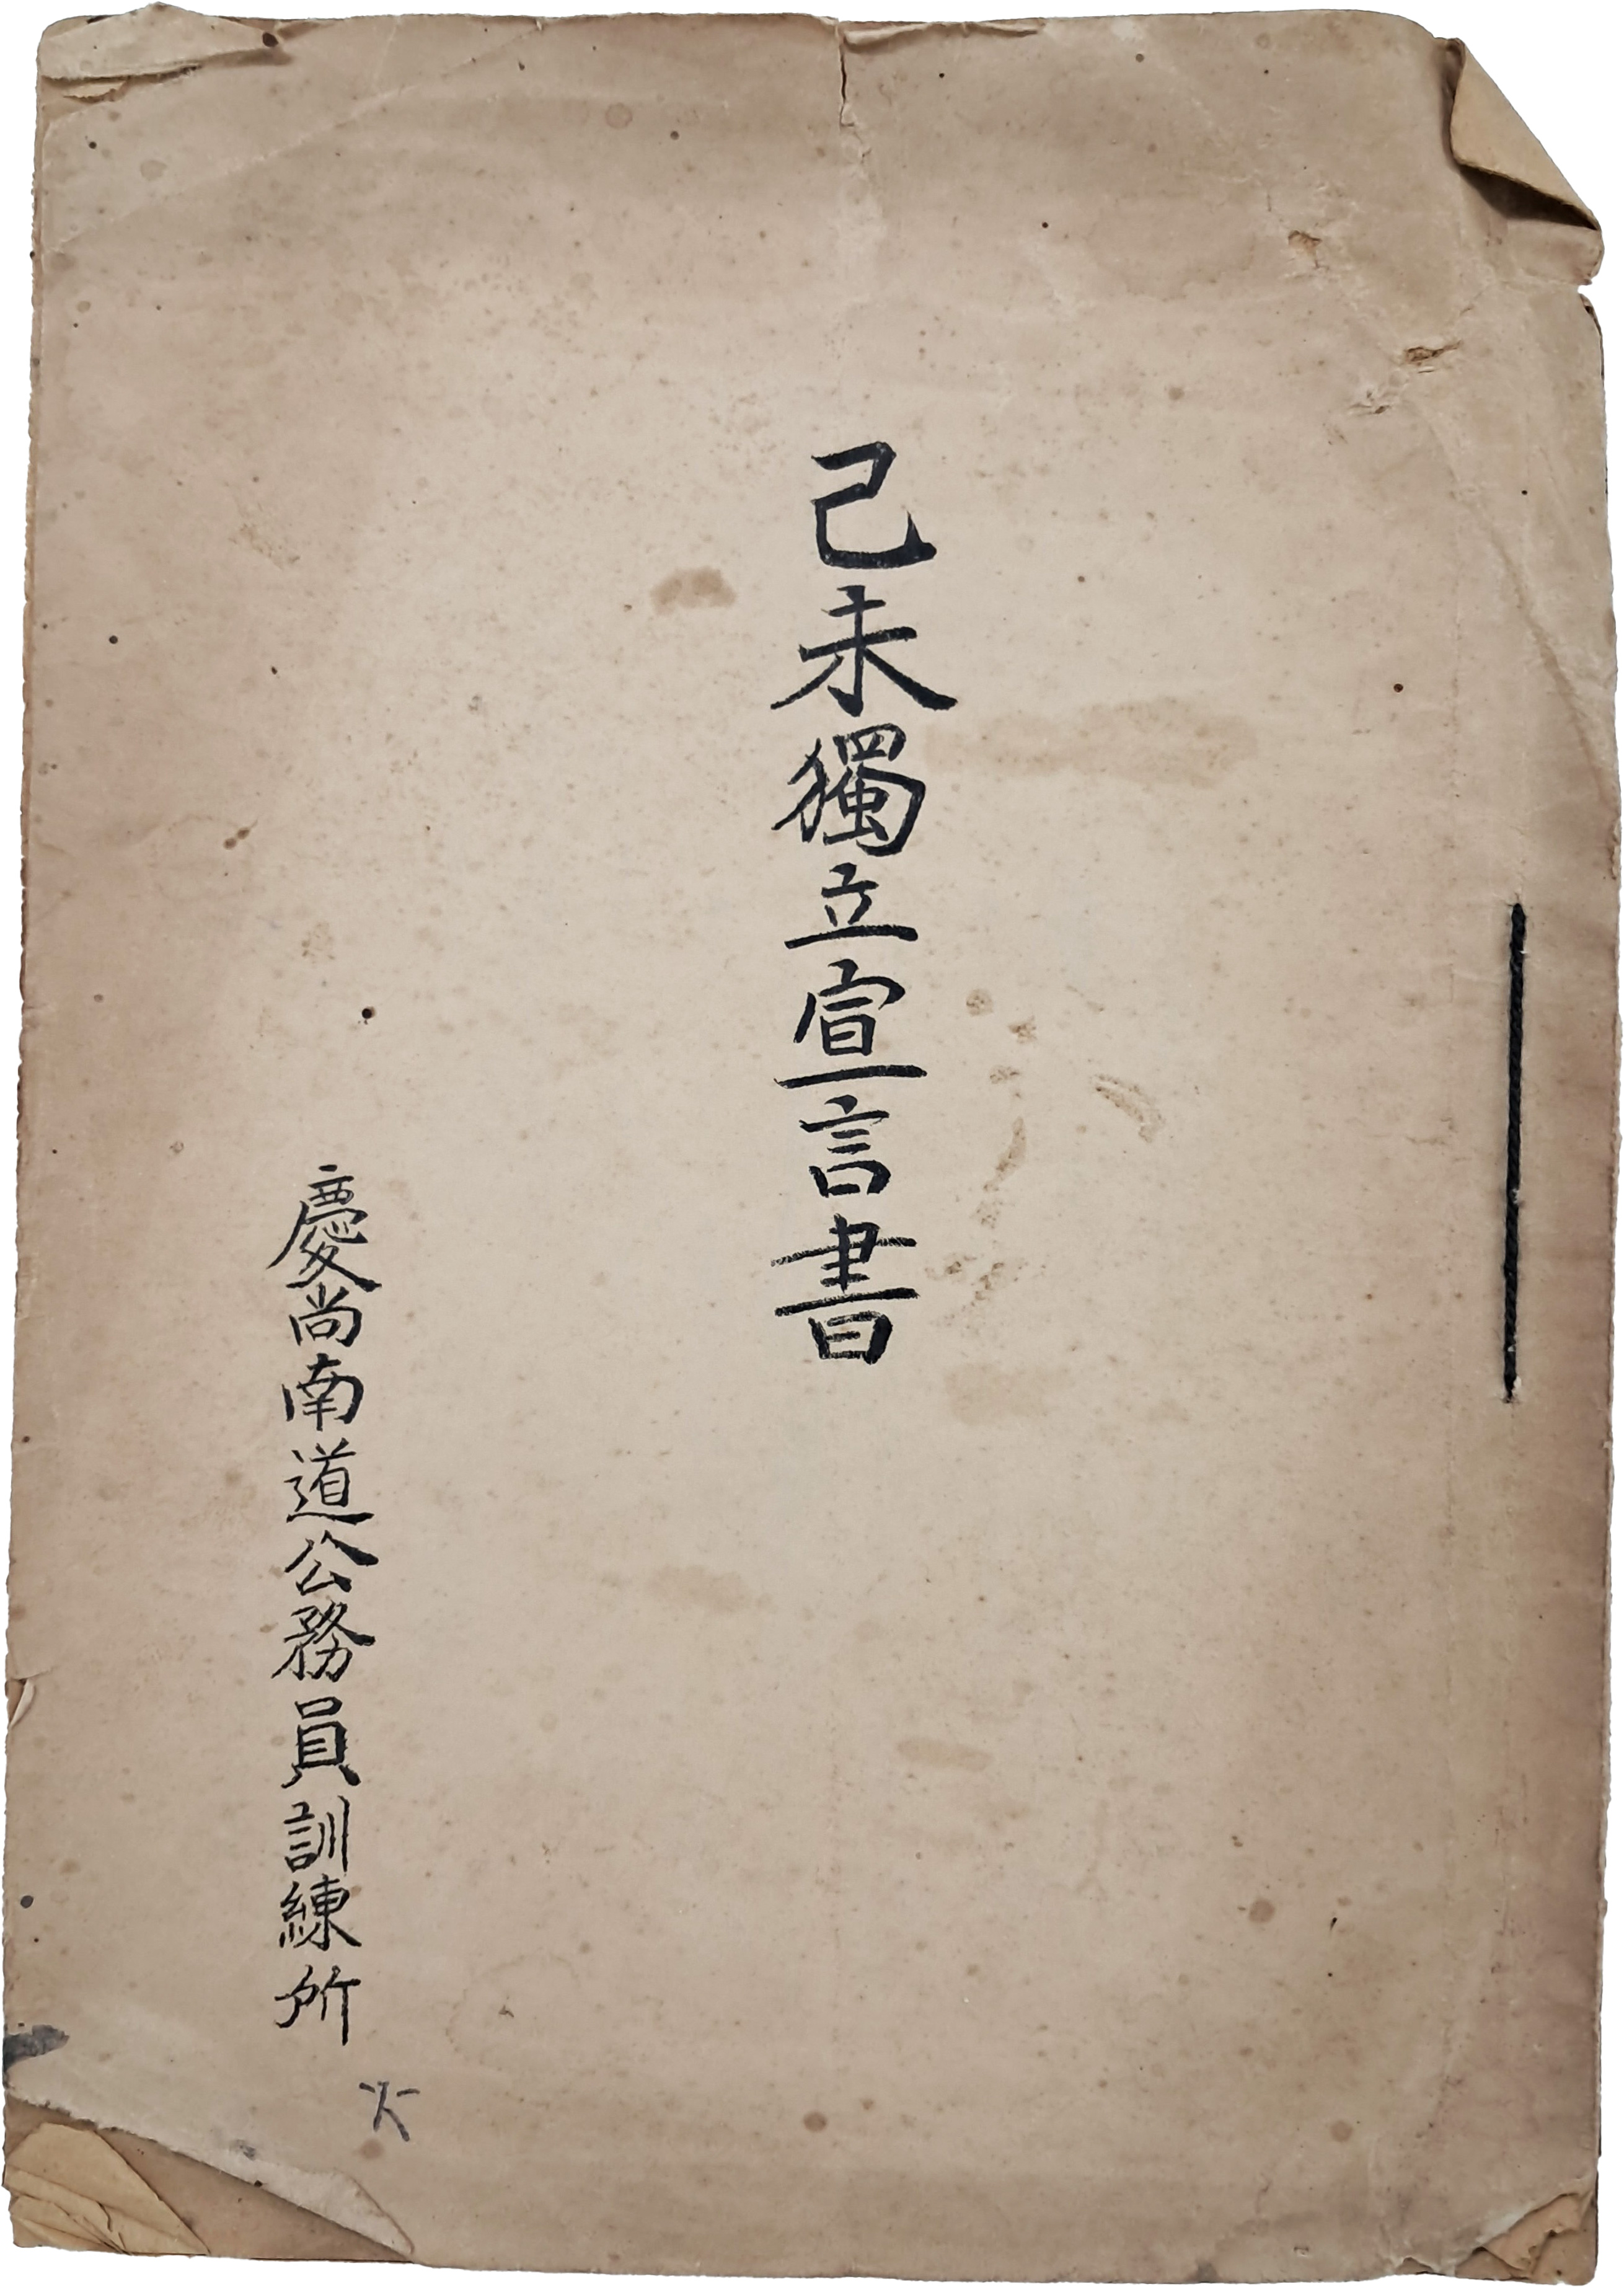 己未獨立宣言書
慶尚南道公務員訓練所